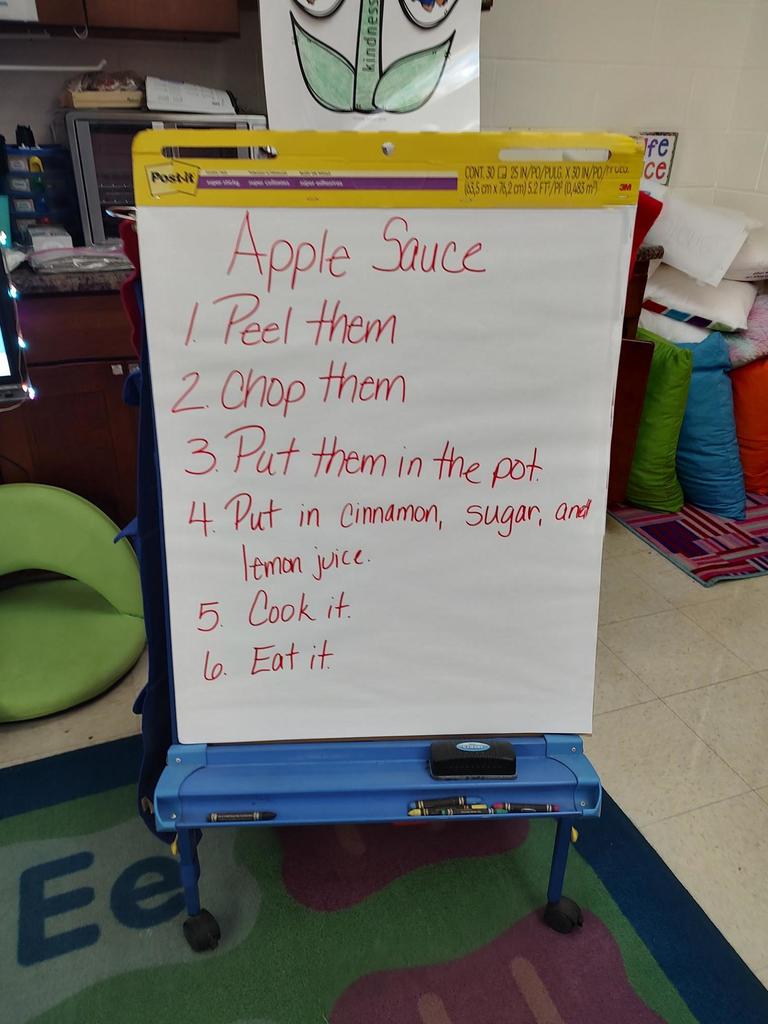 kindness
Post-it
CONT. 30 25 IN/PO/PULG. X 30 IN/PO/
(63,5 cm x 76,2 cm) 5.2 FT²/PI² (0,483 m²)
3M
fe
ce
Apple Sauce
1. Peel them
2. Chop them
3. Put them in the pot.
4. Put in cinnamon, sugar, and
lemon juice.
5. Cook it.
6. Eat it.
Ee